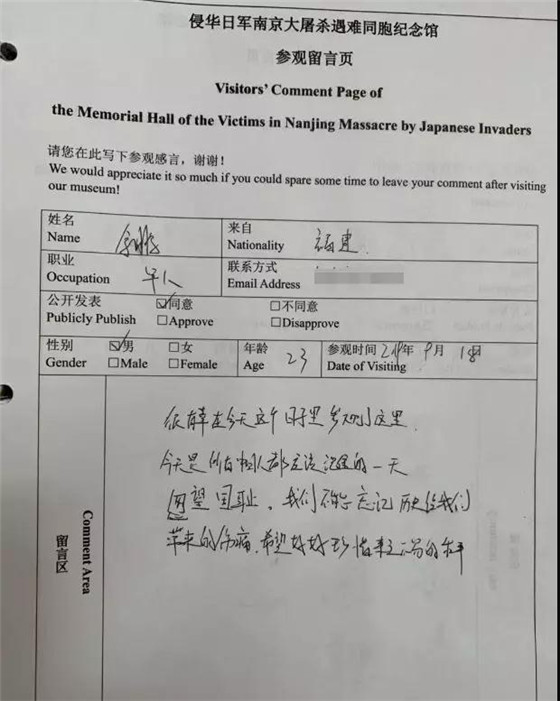 侵华日军南京大屠杀遇难同胞纪念馆
参观留言页
Visitors' Comment Page of
the Memorial Hall of the Victims in Nanjing Massacre by Japanese Invaders
请您在此写下参观感言，谢谢！
We would appreciate it so much if you could spare some time to leave your comment after visiting
our museum!
姓名
Name
来自
Nationality
福建
职业
Occupation
军人
联系方式
Email Address
公开发表
Publicly Publish
☑同意
☐Approve
☐不同意
☐Disapprove
性别
Gender
☑男
☐Male
☐女
☐Female
年龄
Age
23
参观时间 年 9月 18日
Date of Visiting
Comment Area
留言区
很有幸在今天这个日子里参观这里.
今天是所有中国人都应该记住的一天
勿忘国耻、我们不能忘记历史给我们
带来的伤痛.希望好好珍惜来之不易的和平